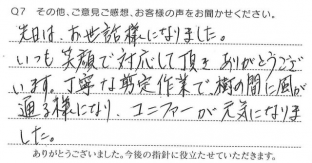 Q7 その他、ご意見ご感想、お客様の声をお聞かせください。
先日は、お世話様になりました。
いつも笑顔で対応して頂き ありがとうござ
います。丁寧な剪定作業で樹の間に風が
通る様になり、コニファーが元気になりま
した。
ありがとうございました。今後の指針に役立たせていただきます。